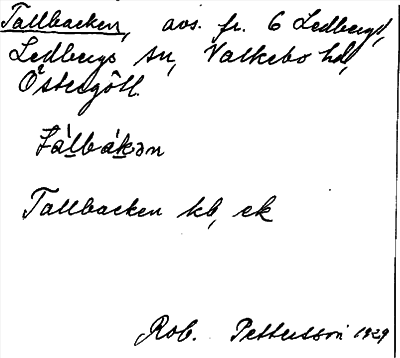 Tallbacken, avs. fr. 6 Ledberg,
Ledbergs sn, Valkebo hd,
Östergötl.
Tallbacken kb, ek
Rob. Pettersson 1929